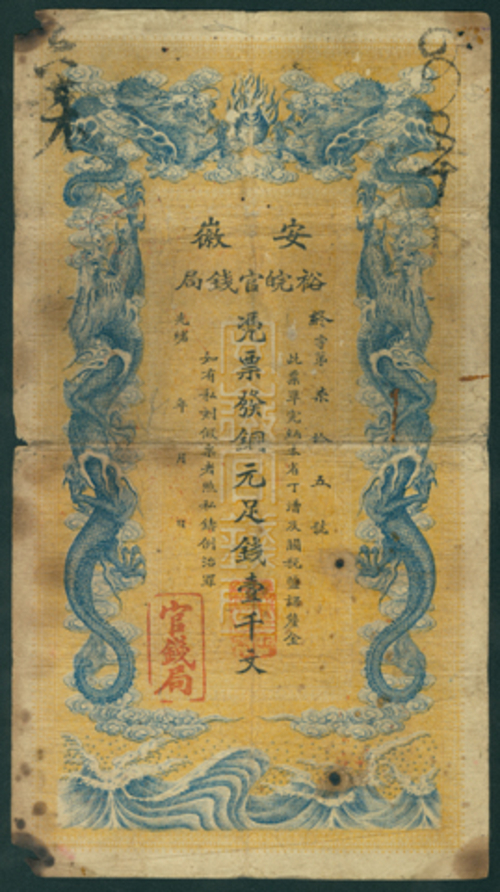 安徽
裕皖官錢局
終字第柒拾五號
此票準完納本省丁漕及關稅鹽課釐金
憑票發銅元足錢壹千文
如有私刻假票者照私鑄例治罪
光緒 年 月 日
官錢局